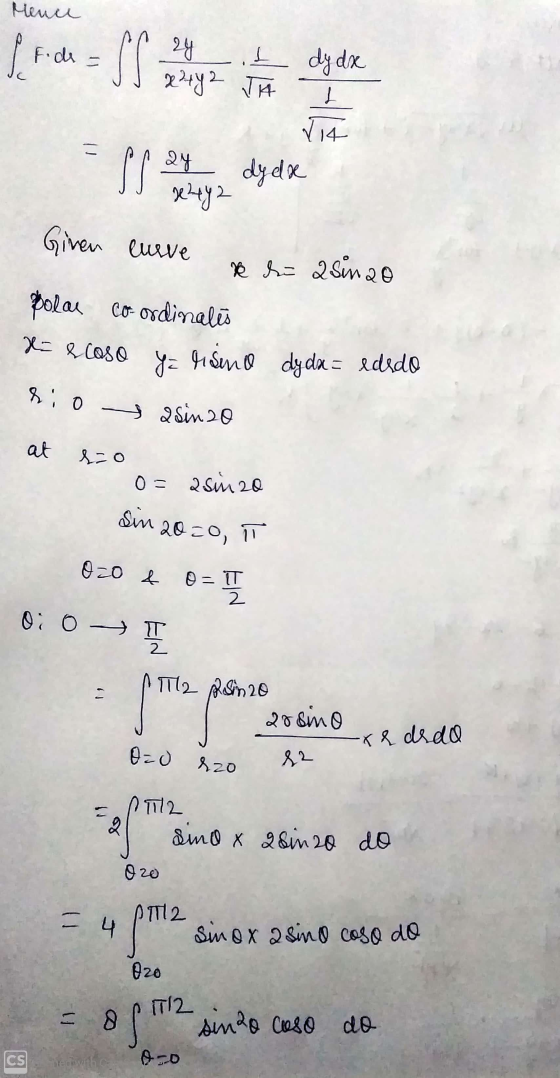 Hence
∫_c F·dr = ∫∫ 2y/(x²+y²) · 1/√14 dydx/(1/√14)
= ∫∫ 2y/(x²+y²) dydx
Given curve r = 2sin2θ
polar co-ordinates
x = r cosθ y = r sinθ dydx = rdrdθ
r: 0 → 2sin2θ
at r=0
0 = 2sin2θ
sin 2θ = 0, π
θ=0 & θ = π/2
θ: 0 → π/2
= ∫_{θ=0}^{π/2} ∫_{r=0}^{2sin2θ} 2r sinθ/r² × r drdθ
= 2∫_{θ=0}^{π/2} sinθ × 2sin2θ dθ
= 4 ∫_{θ=0}^{π/2} sinθ × 2sinθ cosθ dθ
= 8 ∫_{θ=0}^{π/2} sin²θ cosθ dθ
CS